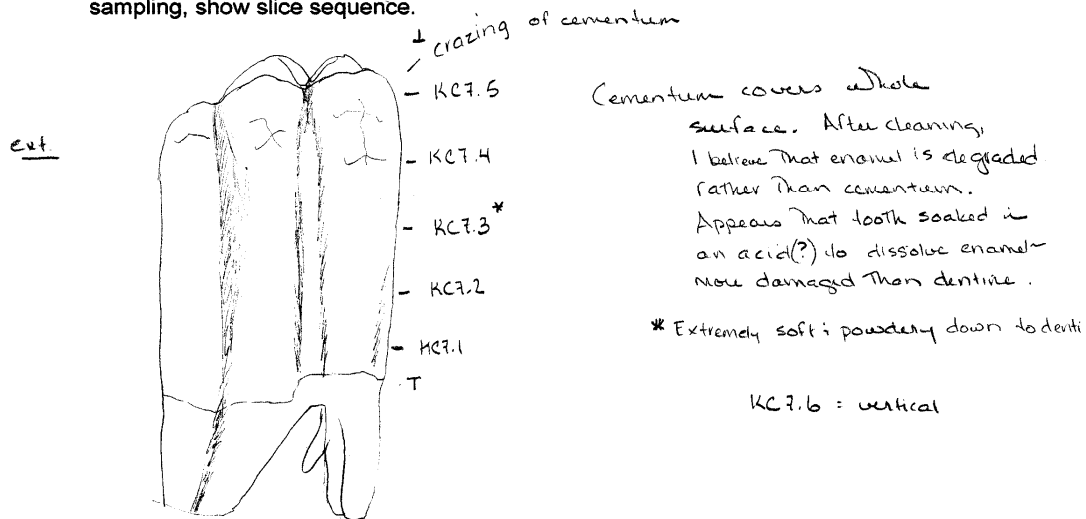 sampling, show slice sequence.
⊥ crazing of cementum
KC7.5
ext.
KC7.4
KC7.3*
KC7.2
KC7.1
T
Cementum covers whole
surface. After cleaning,
I believe that enamel is degraded
rather than cementum.
Appears that tooth soaked in
an acid(?) to dissolve enamel~
more damaged than dentine.
* Extremely soft & powdery down to denti
KC7.6 = vertical